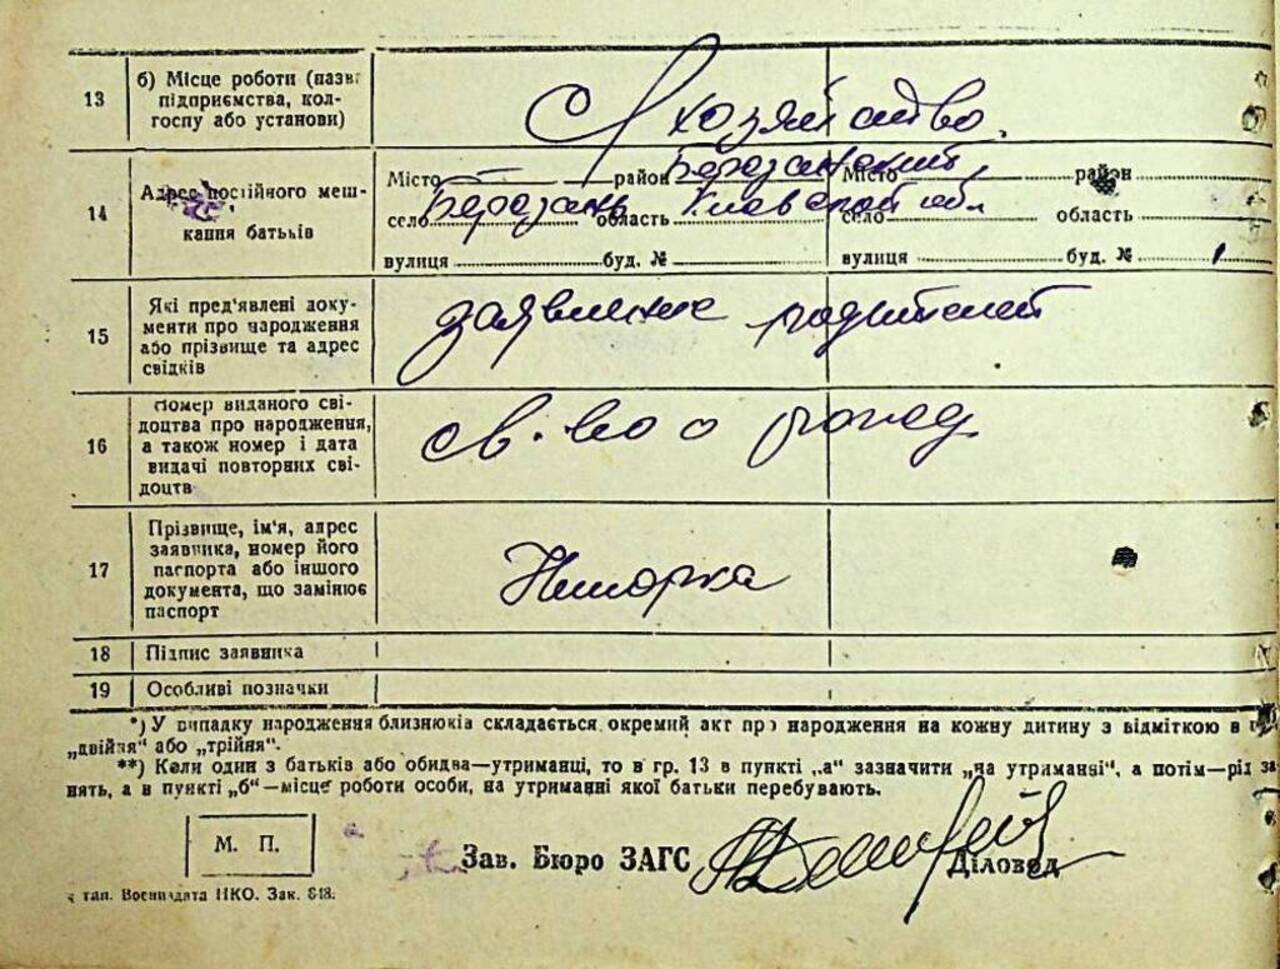 13
б) Місце роботи (назва
підприємства, кол-
госпу або установи)
С/хозяйство.
14
Адрес постійного меш-
кання батьків
Місто район Березанский Місто район
село Березань область Киевской обл село область
вулиця буд. № вулиця буд. №
15
Які пред'явлені доку-
менти про народження
або прізвище та адрес
свідків
заявление родителей
16
Номер виданого сві-
доцтва про народження,
а також номер і дата
видачі повторних сві-
доцтв
св-во о рожд
17
Прізвище, ім'я, адрес
заявника, номер його
паспорта або іншого
документа, що замінює
паспорт
18 Підпис заявника
19 Особливі позначки
*) У випадку народження близнюків складається окремий акт про народження на кожну дитину з відміткою в
„двійня“ або „трійня“.
**) Коли один з батьків або обидва—утриманці, то в гр. 13 в пункті „а“ зазначити „на утриманні“, а потім—рід за
нять, а в пункті „б“—місце роботи особи, на утриманні якої батьки перебувають.
М. П.
Зав. Бюро ЗАГС Діловод
тип. Воениздата НКО. Зак. 848.